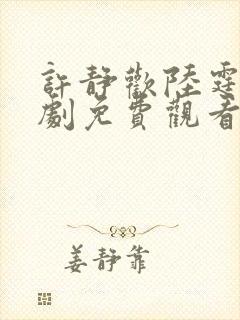 許靜歡陸霆
劇免費觀看
姜靜靠